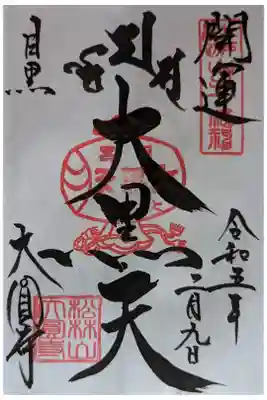 開運
令和五年
二月九日
大黒天
目黒
大圓寺
松林山
大圓寺